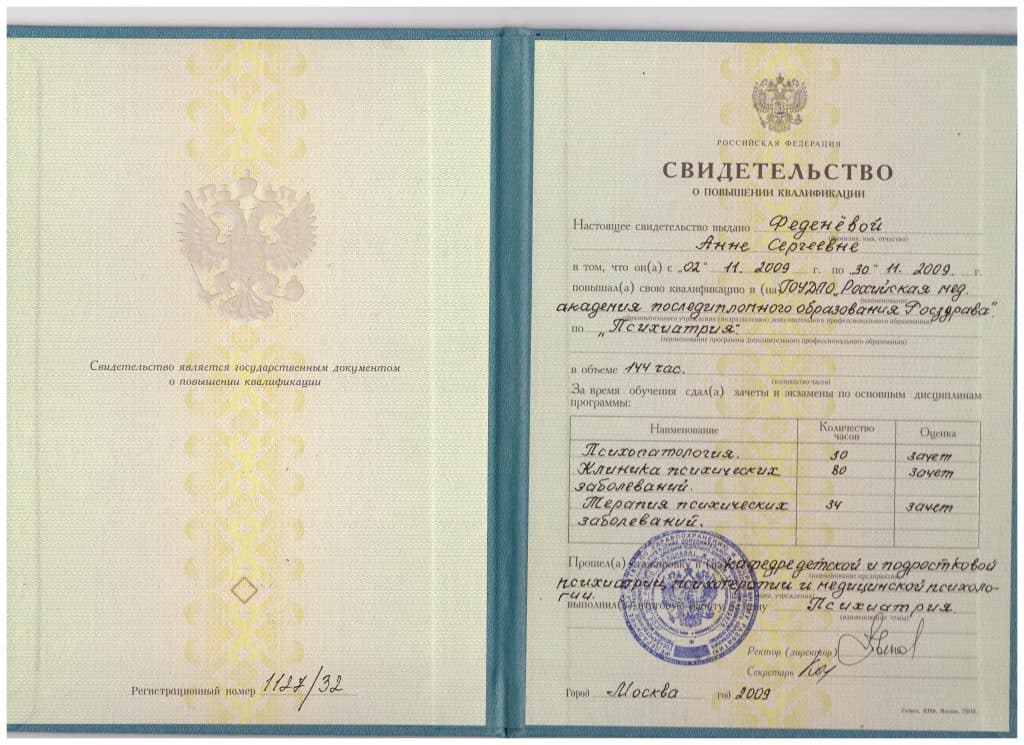 Свидетельство является государственным документом
о повышении квалификации
Регистрационный номер 1127/32
РОССИЙСКАЯ ФЕДЕРАЦИЯ
СВИДЕТЕЛЬСТВО
О ПОВЫШЕНИИ КВАЛИФИКАЦИИ
Настоящее свидетельство выдано Феденёвой
(фамилия, имя, отчество)
Анне Сергеевне
в том, что он(а) с „02" 11. 2009 г. по „30" 11. 2009. г.
повышал(а) свою квалификацию в (на) ГОУДПО „Российская мед.
(наименование
академия последипломного образования Росздрава".
образовательного учреждения (подразделения) дополнительного профессионального образования)
по „Психиатрия".
(наименование программы дополнительного профессионального образования)
в объеме 144 час.
(количество часов)
За время обучения сдал(а) зачеты и экзамены по основным дисциплинам
программы:
Наименование Количество часов Оценка
Психопатология. 30 зачет
Клиника психических 80 зачет
заболеваний.
Терапия психических 34 зачет
заболеваний.
Прошел(а) стажировку в (на) кафедре детской и подростковой
(наименование предприятия,
психиатрии, психотерапии и медицинской психоло-
гии. учреждения)
выполнил(а) итоговую работу на тему Психиатрия.
(наименование темы)
Ректор (директор)
Секретарь
Город Москва год 2009